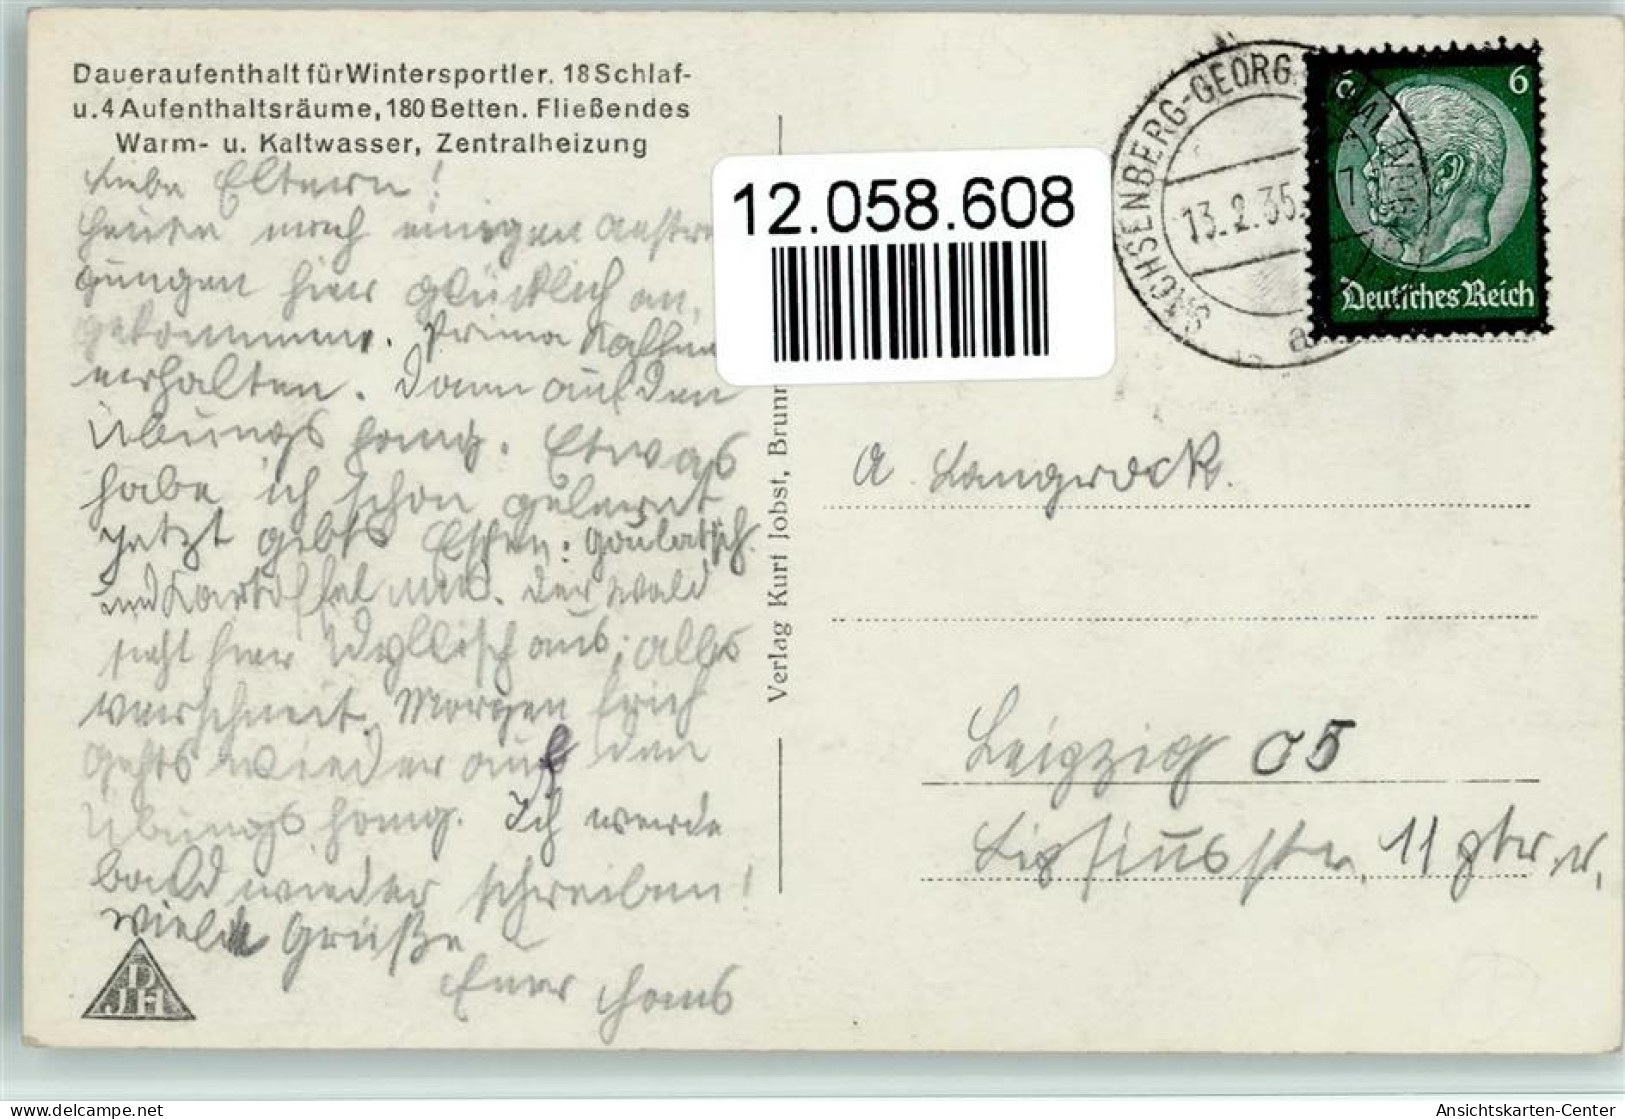 Daueraufenthalt für Wintersportler. 18 Schlaf-
u. 4 Aufenthaltsräume, 180 Betten. Fließendes
Warm- u. Kaltwasser, Zentralheizung
Liebe Eltern!
Heute nach einigen Anstren
gungen hier glücklich an,
gekommen. Prima Kaffee
erhalten. Dann auf den
Übungshang. Etwas
habe ich schon gelernt
jetzt gibts Essen: Goulasch
und Kartoffelmus. Der Wald
sieht hier Idyllisch aus; alles
verschneit. Morgen früh
gehts wieder auf den
Übungshang. Ich werde
bald wieder schreiben!
Viele Grüße
Euer Hans
DJH
Verlag Kurt Jobst, Brunn
12.058.608
SACHSENBERG-GEORG
13.2.35
a
6 6
Deutsches Reich
A. Langrock.
Leipzig O5
Lipsiusstr. 11 ptr. r.
delcampe.net
Ansichtskarten-Center